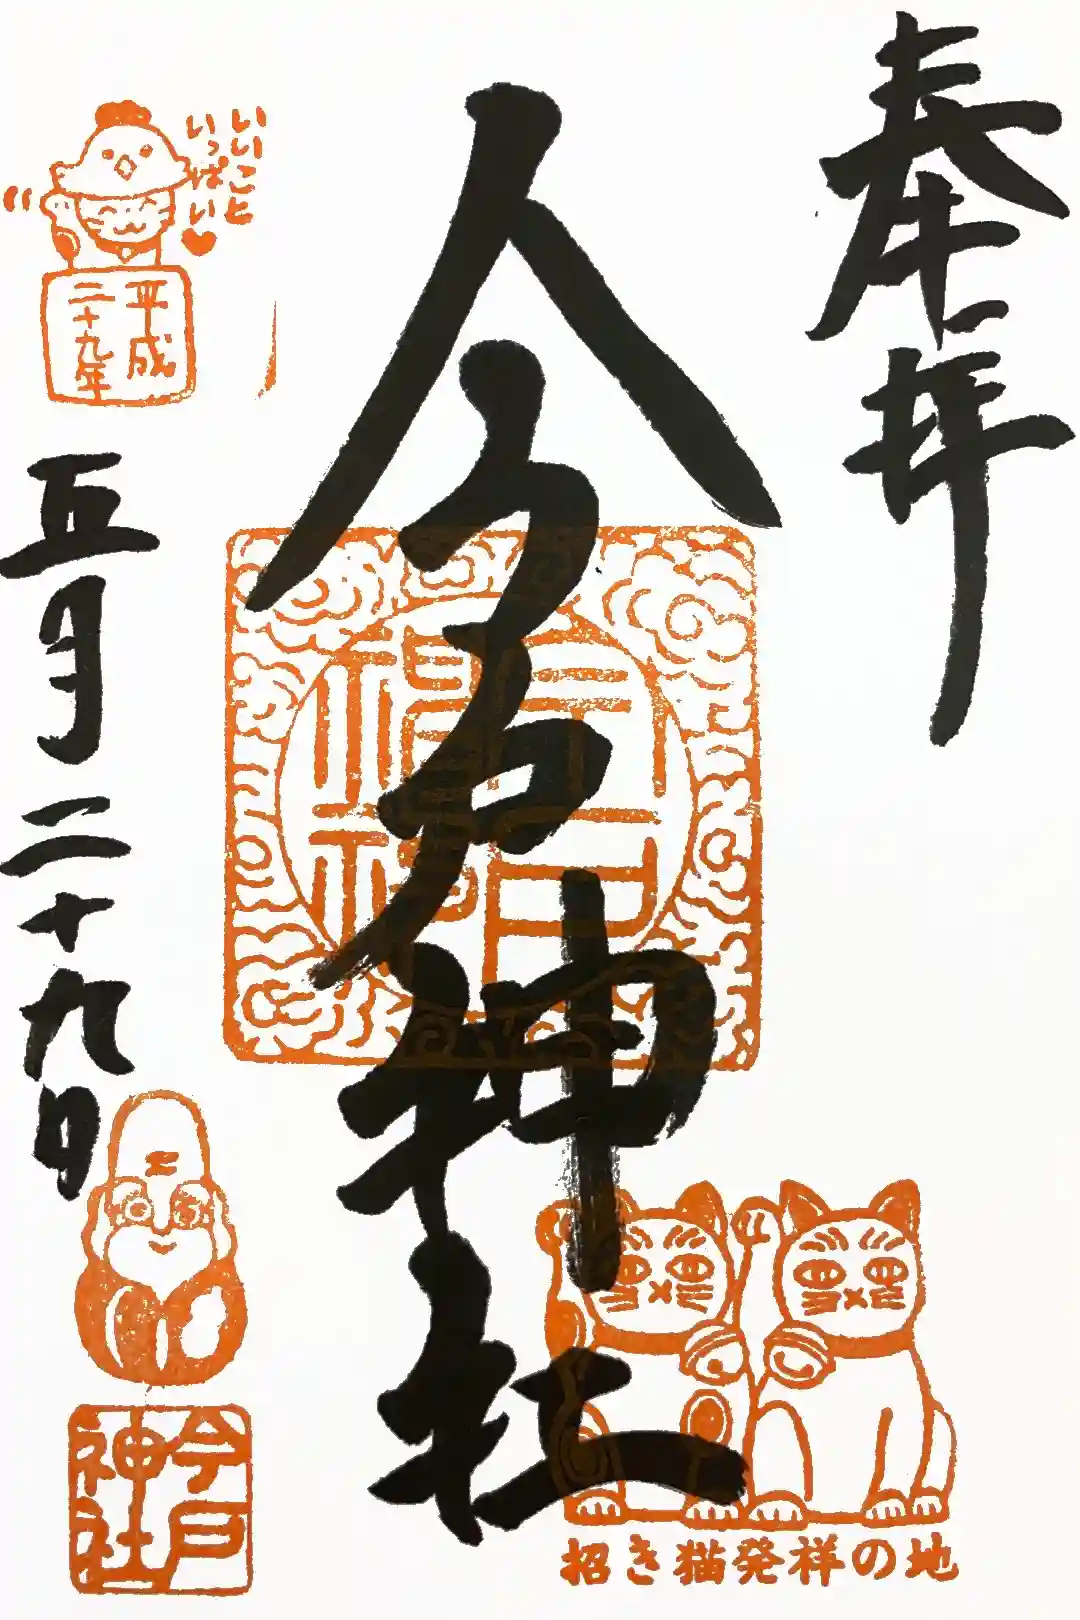 奉拝
今戸神社
招き猫発祥の地
いいこと
いっぱい♥
平成
二十九年
五月二十九日
今戸
神社